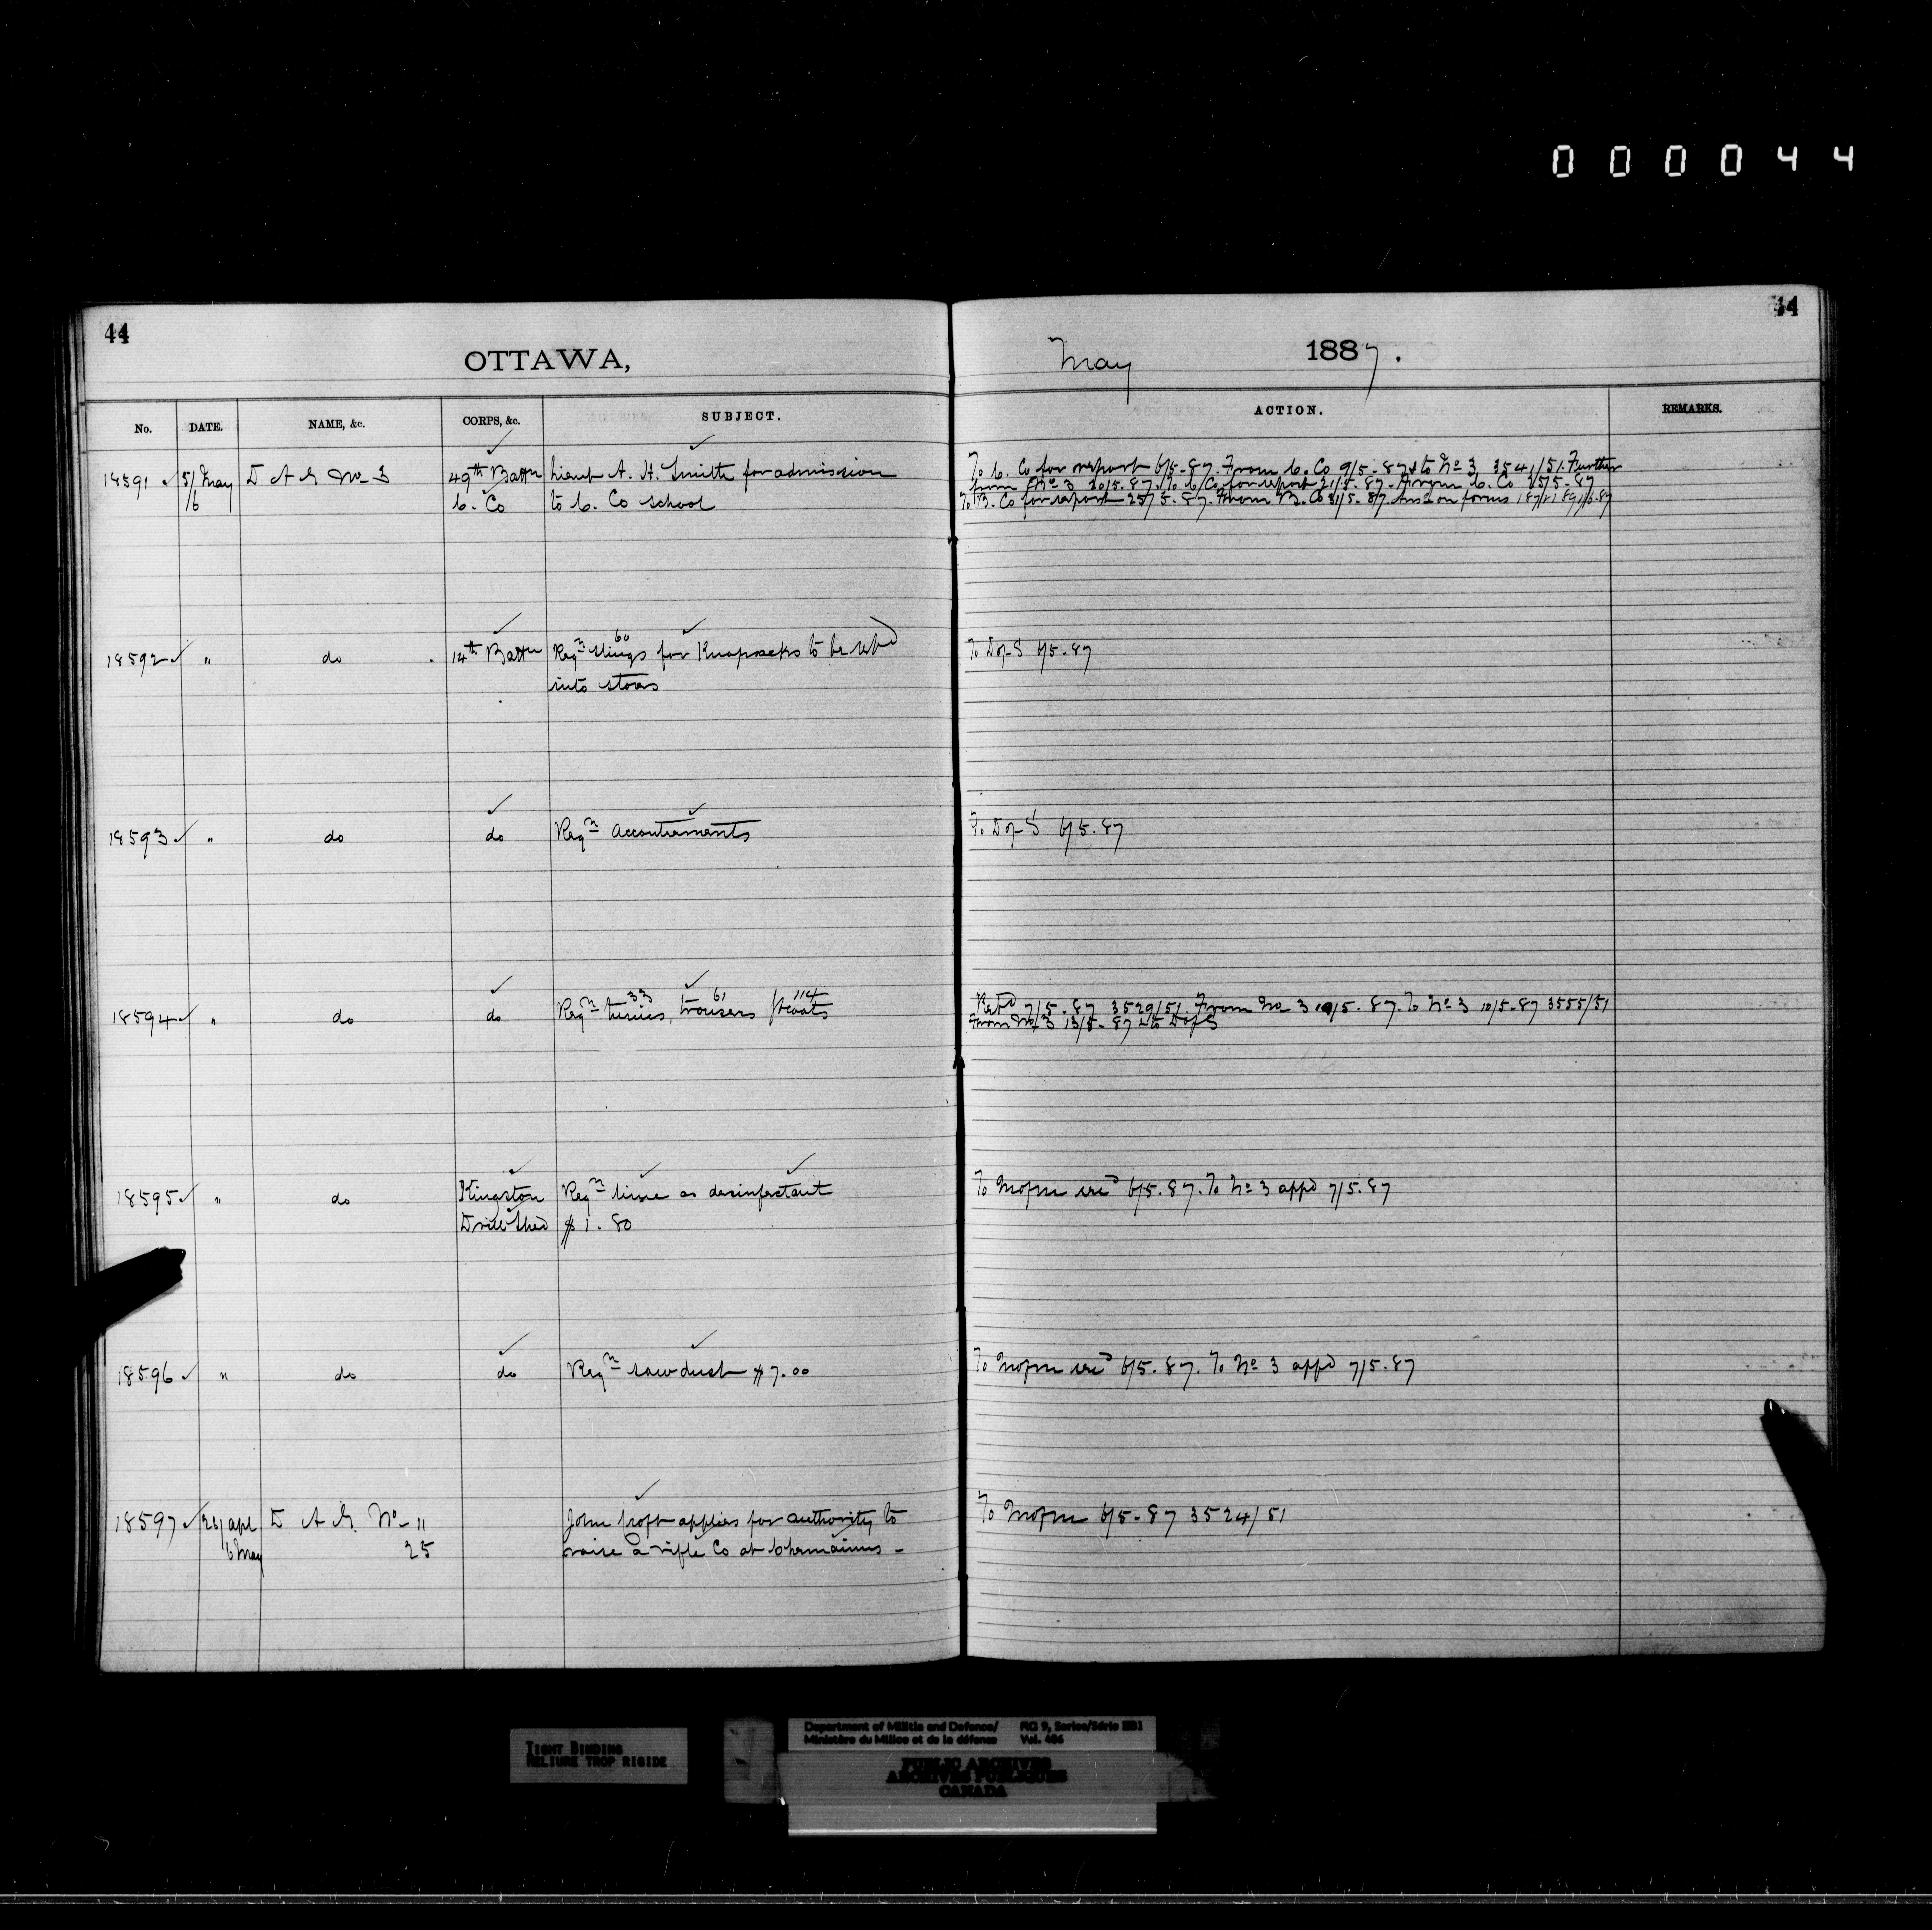 000044
44
44
OTTAWA,
May 1887.
No. DATE. NAME, &c. CORPS, &c. SUBJECT.
ACTION. REMARKS.
18591 5/May D A G No 3 49th Battn Lieut A. H. Smith for admission
6 C. Co to C. Co school
To C. Co for report 6/5-87. From C. Co 9/5-87 & to No 3 3541/51. Further
from No 3 20/5.87. To C. Co for report 21/5.87. From C. Co 25/5-87
To B. Co for report 25/5-87. From B. Co 31/5-87. on forms
18592 " do 14th Battn Reqn 60 slings for Knapsacks to be retd
into stores
To D of S 6/5.87
18593 " do do Reqn accoutrements
To D of S 6/5.87
18594 " do do Reqn tunics, 33 trousers 61 fcoats 114
Retd 7/5.87 3529/51. From No 3 9/5.87. To No 3 10/5-87 3555/51
From No 3 13/5-87 & to D of S
18595 " do Kingston Reqn lime as desinfectant
Drill Shed $1.80
To Mofm 6/5.87. To No 3 appd 7/5.87
18596 " do do Reqn sawdust $7.00
To Mofm 6/5.87. To No 3 appd 7/5.87
18597 26/apl D A G. No 11 John Croft applies for authority to
6 May 25 raise a rifle Co at Chemainus -
To Mofm 6/5-87 3524/51
TIGHT BINDING
RELIURE TROP RIGIDE
Department of Militia and Defence/ RG 9, Series/Série IIB1
Ministère du Milice et de la défense Vol. 486
PUBLIC ARCHIVES
ARCHIVES PUBLIQUES
CANADA